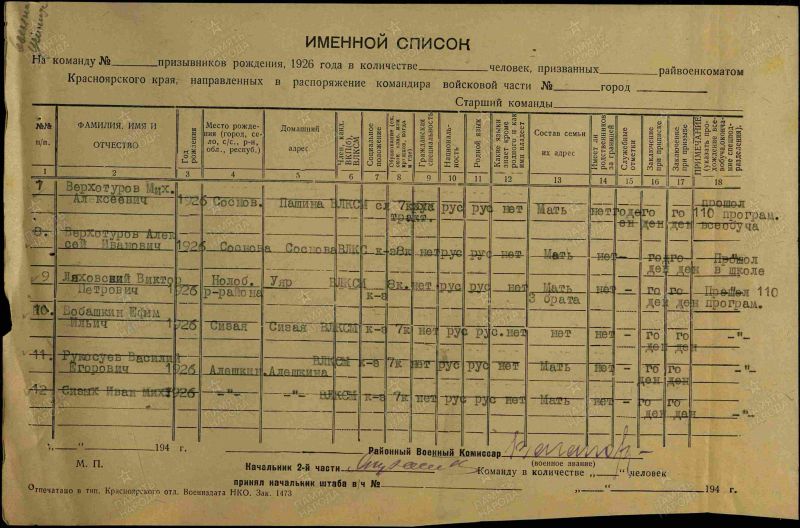 ИМЕННОЙ СПИСОК
На команду № призывников рождения, 1926 года в количестве человек, призванных райвоенкоматом
Красноярского края, направленных в распоряжение командира войсковой части № город
Старший команды
№№ п/п. ФАМИЛИЯ, ИМЯ И ОТЧЕСТВО Год рождения Место рождения (город, село, с/с., р-н, обл., респуб.) Домашний адрес Член, канд. ВКП(б), ВЛКСМ Социальное положение Гражданская специальность Националь-ность Родной язык Какие языки знает кроме родного и как ими владеет Состав семьи их адрес Имеет ли родственников за границей Служебные отметки Заключение при приписке Заключение при призыве ПРИМЕЧАНИЕ
1 2 3 4 5 6 7 8 9 10 11 12 13 14 15 16 17 18
7 Верхотуров Мих. прошол
Алексеевич 1926 Соснов. Пашина ВЛКСМ рус рус нет Мать нет го го 110 програм.
ден ден всеобуча
8. Верхотуров Алек
сей Иванович 1926 Соснова Соснова ВЛКС к-з 8к нет рус рус нет Мать нет - го го Прошол
ден ден в школе
9 Ляховский Виктор Нолоб. Уяр ВЛКСМ 8к. нет рус рус нет Мать нет - го го Прошол 110
Петрович 1926 р-района к-з 3 брата ден ден програм.
10. Бобашкин Ефим
Ильич 1926 Сивая Сивая ВЛКСМ к-з 7к нет рус рус. нет нет нет - го го -"-
ден ден
11. Рукосуев Василий ВЛКСМ к-з 7к нет рус рус нет Мать нет - го го -"-
Егорович 1926 Алешкин. Алешкина ден ден
12 Сизых Иван Мих. 1926 -"- -"- ВЛКСМ к-з 7к нет рус рус нет Мать нет - го го
ден ден -"-
„ “ 194 г. Районный Военный Комиссар
М. П. (военное звание)
Начальник 2-й части Команду в количестве человек
принял начальник штаба в/ч №
Отпечатано в тип. Красноярского отд. Воениздата НКО. Зак. 1473 „ “ 194 г.